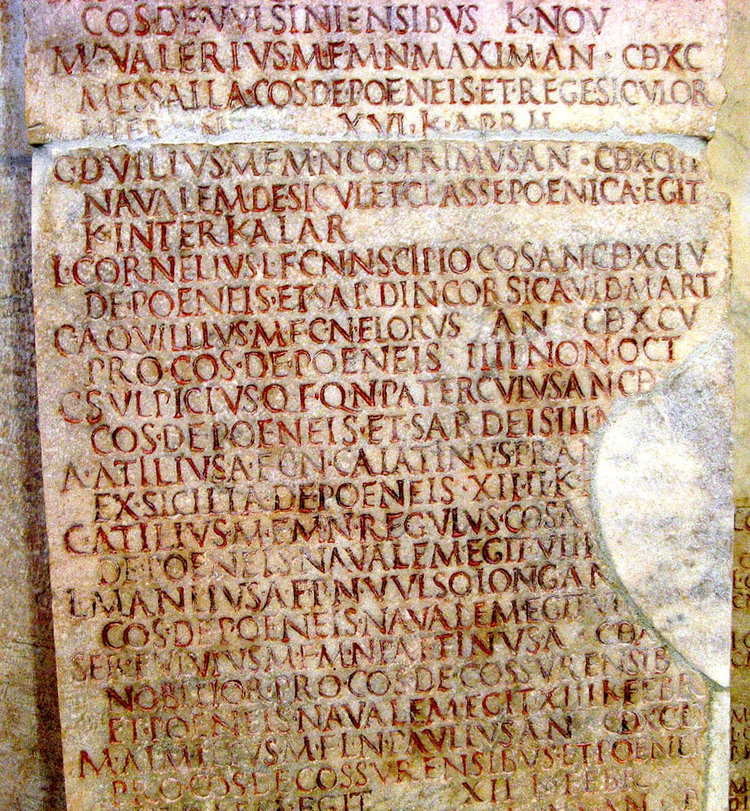 COS·DE·VVLSINIENSIBVS K·NOV
M'·VALERIVS·M·F·M·N·MAXIM·AN · CDXC
MESSALLA·COS·DE·POENEIS·ET·REGE·SICVLOR
HIER XVI·K·APRIL
C·DVILIVS·M·F·M·N·COS·PRIMVS·AN · CDXCIII
NAVALEM·DE·SICVL·ET·CLASSE·POENICA·EGIT
K·INTERKALAR
L·CORNELIVS·L·F·CN·N·SCIPIO COS·AN·CDXCIV
DE·POENEIS·ET·SARDIN·CORSICA·V·ID·MART
C·AQVILLIVS·M·F·C·N·FLORVS AN · CDXCV
PRO·COS·DE·POENEIS · IIII·NON·OCT
C·SVLPICIVS·Q·F·Q·N·PATERCVLVS·AN·CD
COS·DE·POENEIS·ET·SARDEIS·III
A·ATILIVS·A·F·C·N·CAIATINVS·PR·AN
EX·SICILIA·DE·POENEIS·XIIII·K
C·ATILIVS·M·F·M·N·REGVLVS·COS·A
DE·POENEIS·NAVALEM·EGIT·VIII
L·MANLIVS·A·F·P·N·VVLSO·LONG·AN
COS·DE·POENEIS·NAVALEM·EGIT
SER·FVLVIVS·M·F·M·N·PAETINVS·A · CD
NOBILIOR·PRO·COS·DE·COSSVRENSIB
ET·POENEIS·NAVALEM·EGIT·XIII·K·FEBR
M·AIMILIVS·M·F·L·N·PAVLLVS·AN CDXCIX
PRO·COS·DE·COSSVRENSIBVS·ET·POENEIS
EGIT XII K·FEBR